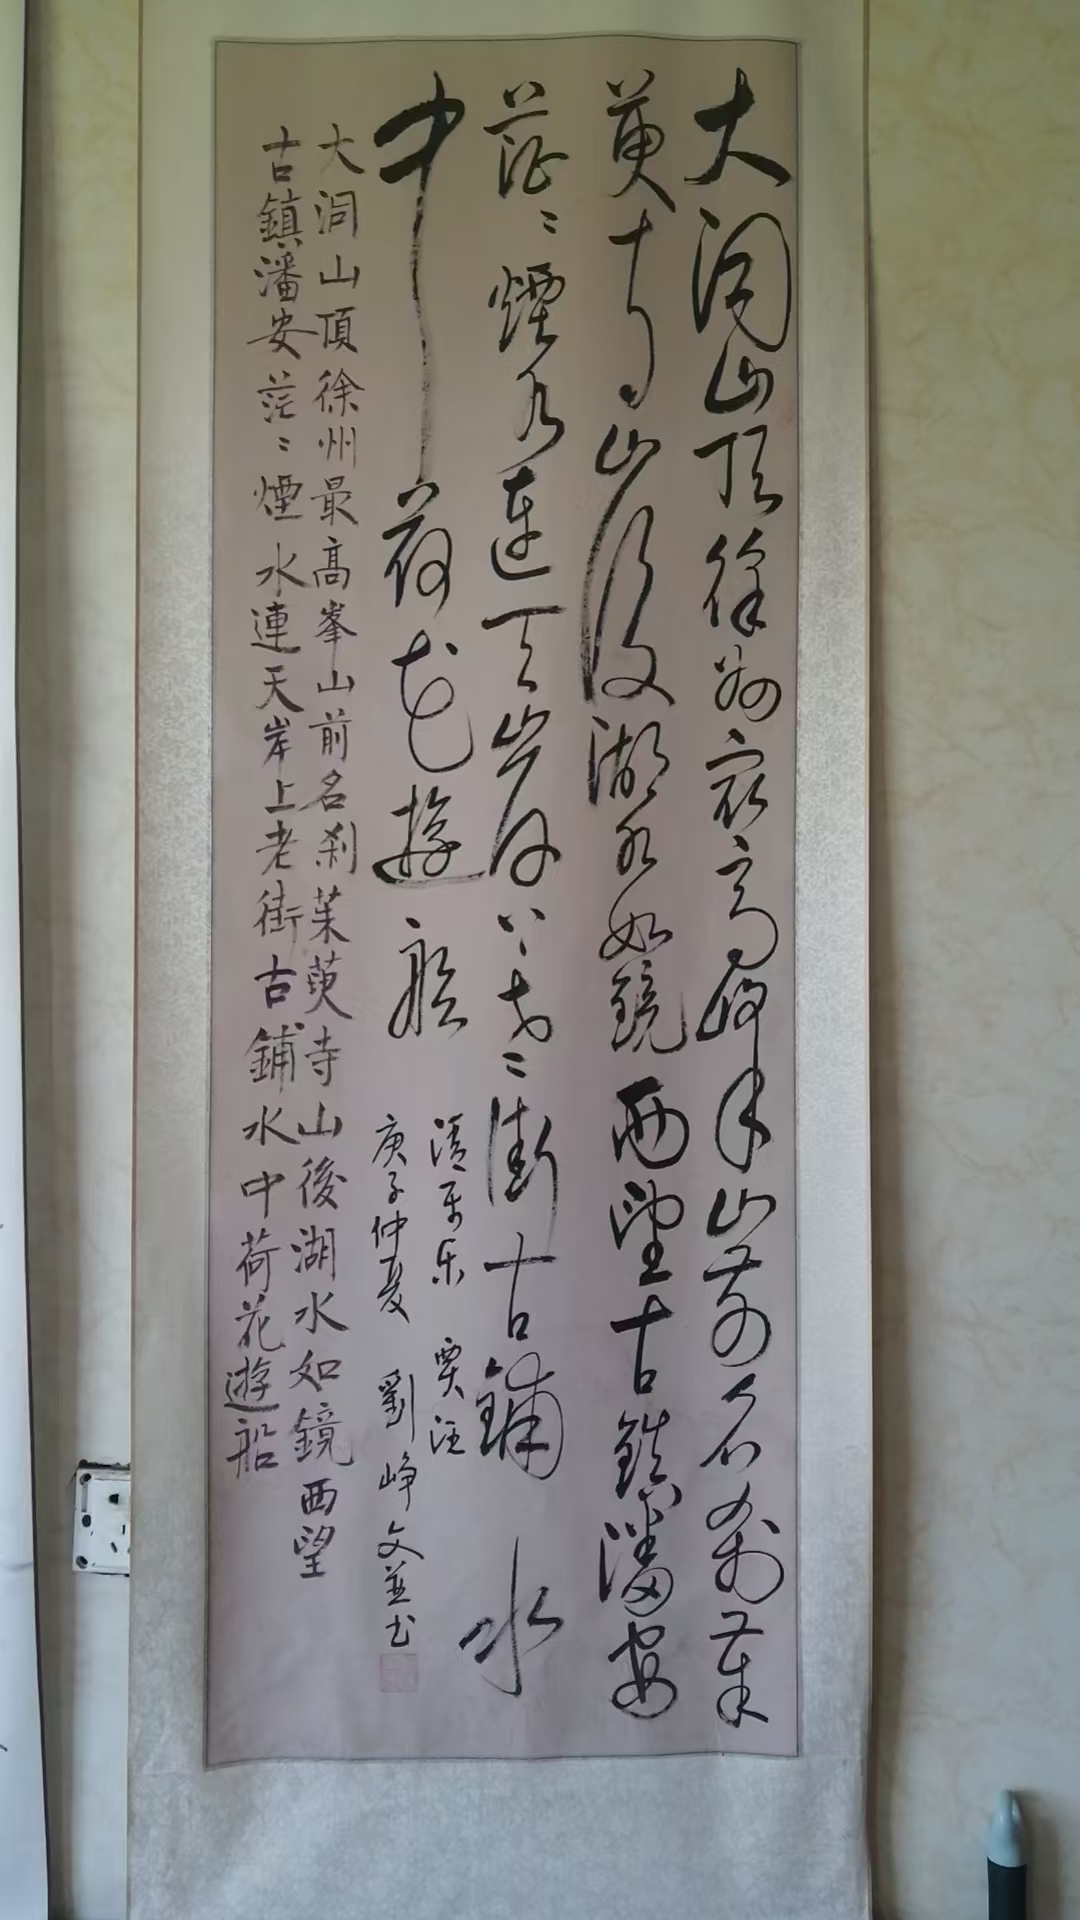 大洞山顶徐州最高峰山前名刹茱
萸寺山後湖水如鏡西望古鎮潘安
茫〻煙水連天岸上老街古鋪水
中荷花遊船
清平乐 贾汪
庚子仲夏 劉峥文並书
大洞山頂徐州最高峯山前名刹茱萸寺山後湖水如鏡西望
古鎮潘安茫〻煙水連天岸上老街古鋪水中荷花遊船